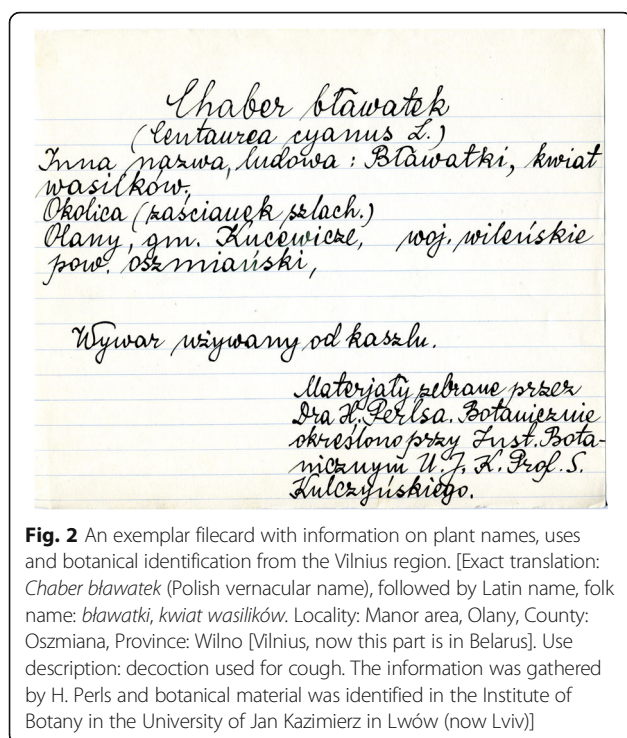 Chaber bławatek
(Centaurea cyanus L.)
Inna nazwa, ludowa: Bławatki, kwiat
wasilków,
Okolica (zaścianek szlach.)
Olany, gm. Kucewicze, woj. wileńskie
pow. oszmiański,
Wywar używany od kaszlu.
Materjały zebrane przez
Dra H. Perlsa. Botanicznie
określono przy Inst. Bota-
nicznym U. J. K. Prof. S.
Kulczyńskiego.
Fig. 2 An exemplar filecard with information on plant names, uses
and botanical identification from the Vilnius region. [Exact translation:
Chaber bławatek (Polish vernacular name), followed by Latin name, folk
name: bławatki, kwiat wasilików. Locality: Manor area, Olany, County:
Oszmiana, Province: Wilno [Vilnius, now this part is in Belarus]. Use
description: decoction used for cough. The information was gathered
by H. Perls and botanical material was identified in the Institute of
Botany in the University of Jan Kazimierz in Lwów (now Lviv)]